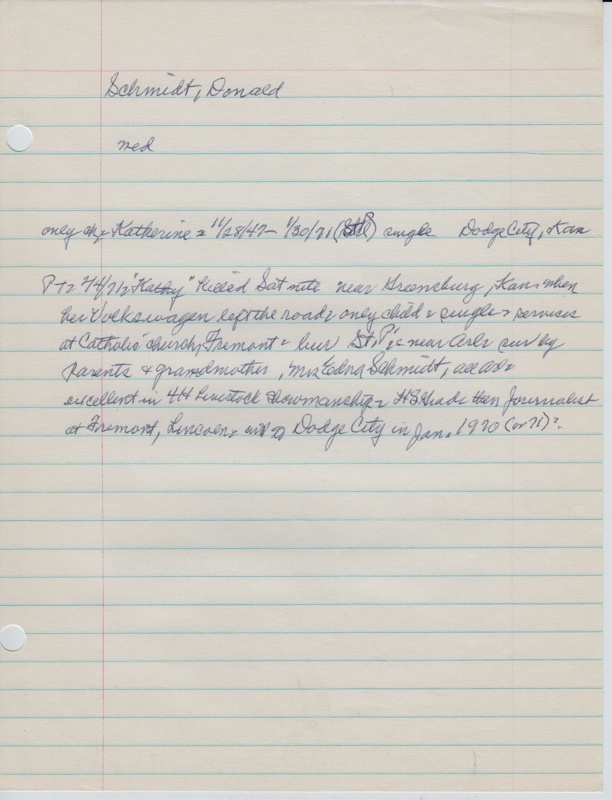 Schmidt, Donald
med
only ch = Katherine = 11/28/47 - 1/30/71 (St P) single Dodge City, Kan
P+ 2/4/71 = "Kathy" killed Sat nite near Greensburg, Kans when
her Volkswagen left the road = only child = single = services
at Catholic church, Fremont = bur St. P's near Arl = sur by
parents & grandmother, Mrs Edna Schmidt, all
excellent in 4H Livestock showmanship = HS Grad then Journalist
at Fremont, Lincoln, to Dodge City in Jan. 1970 (or 71).